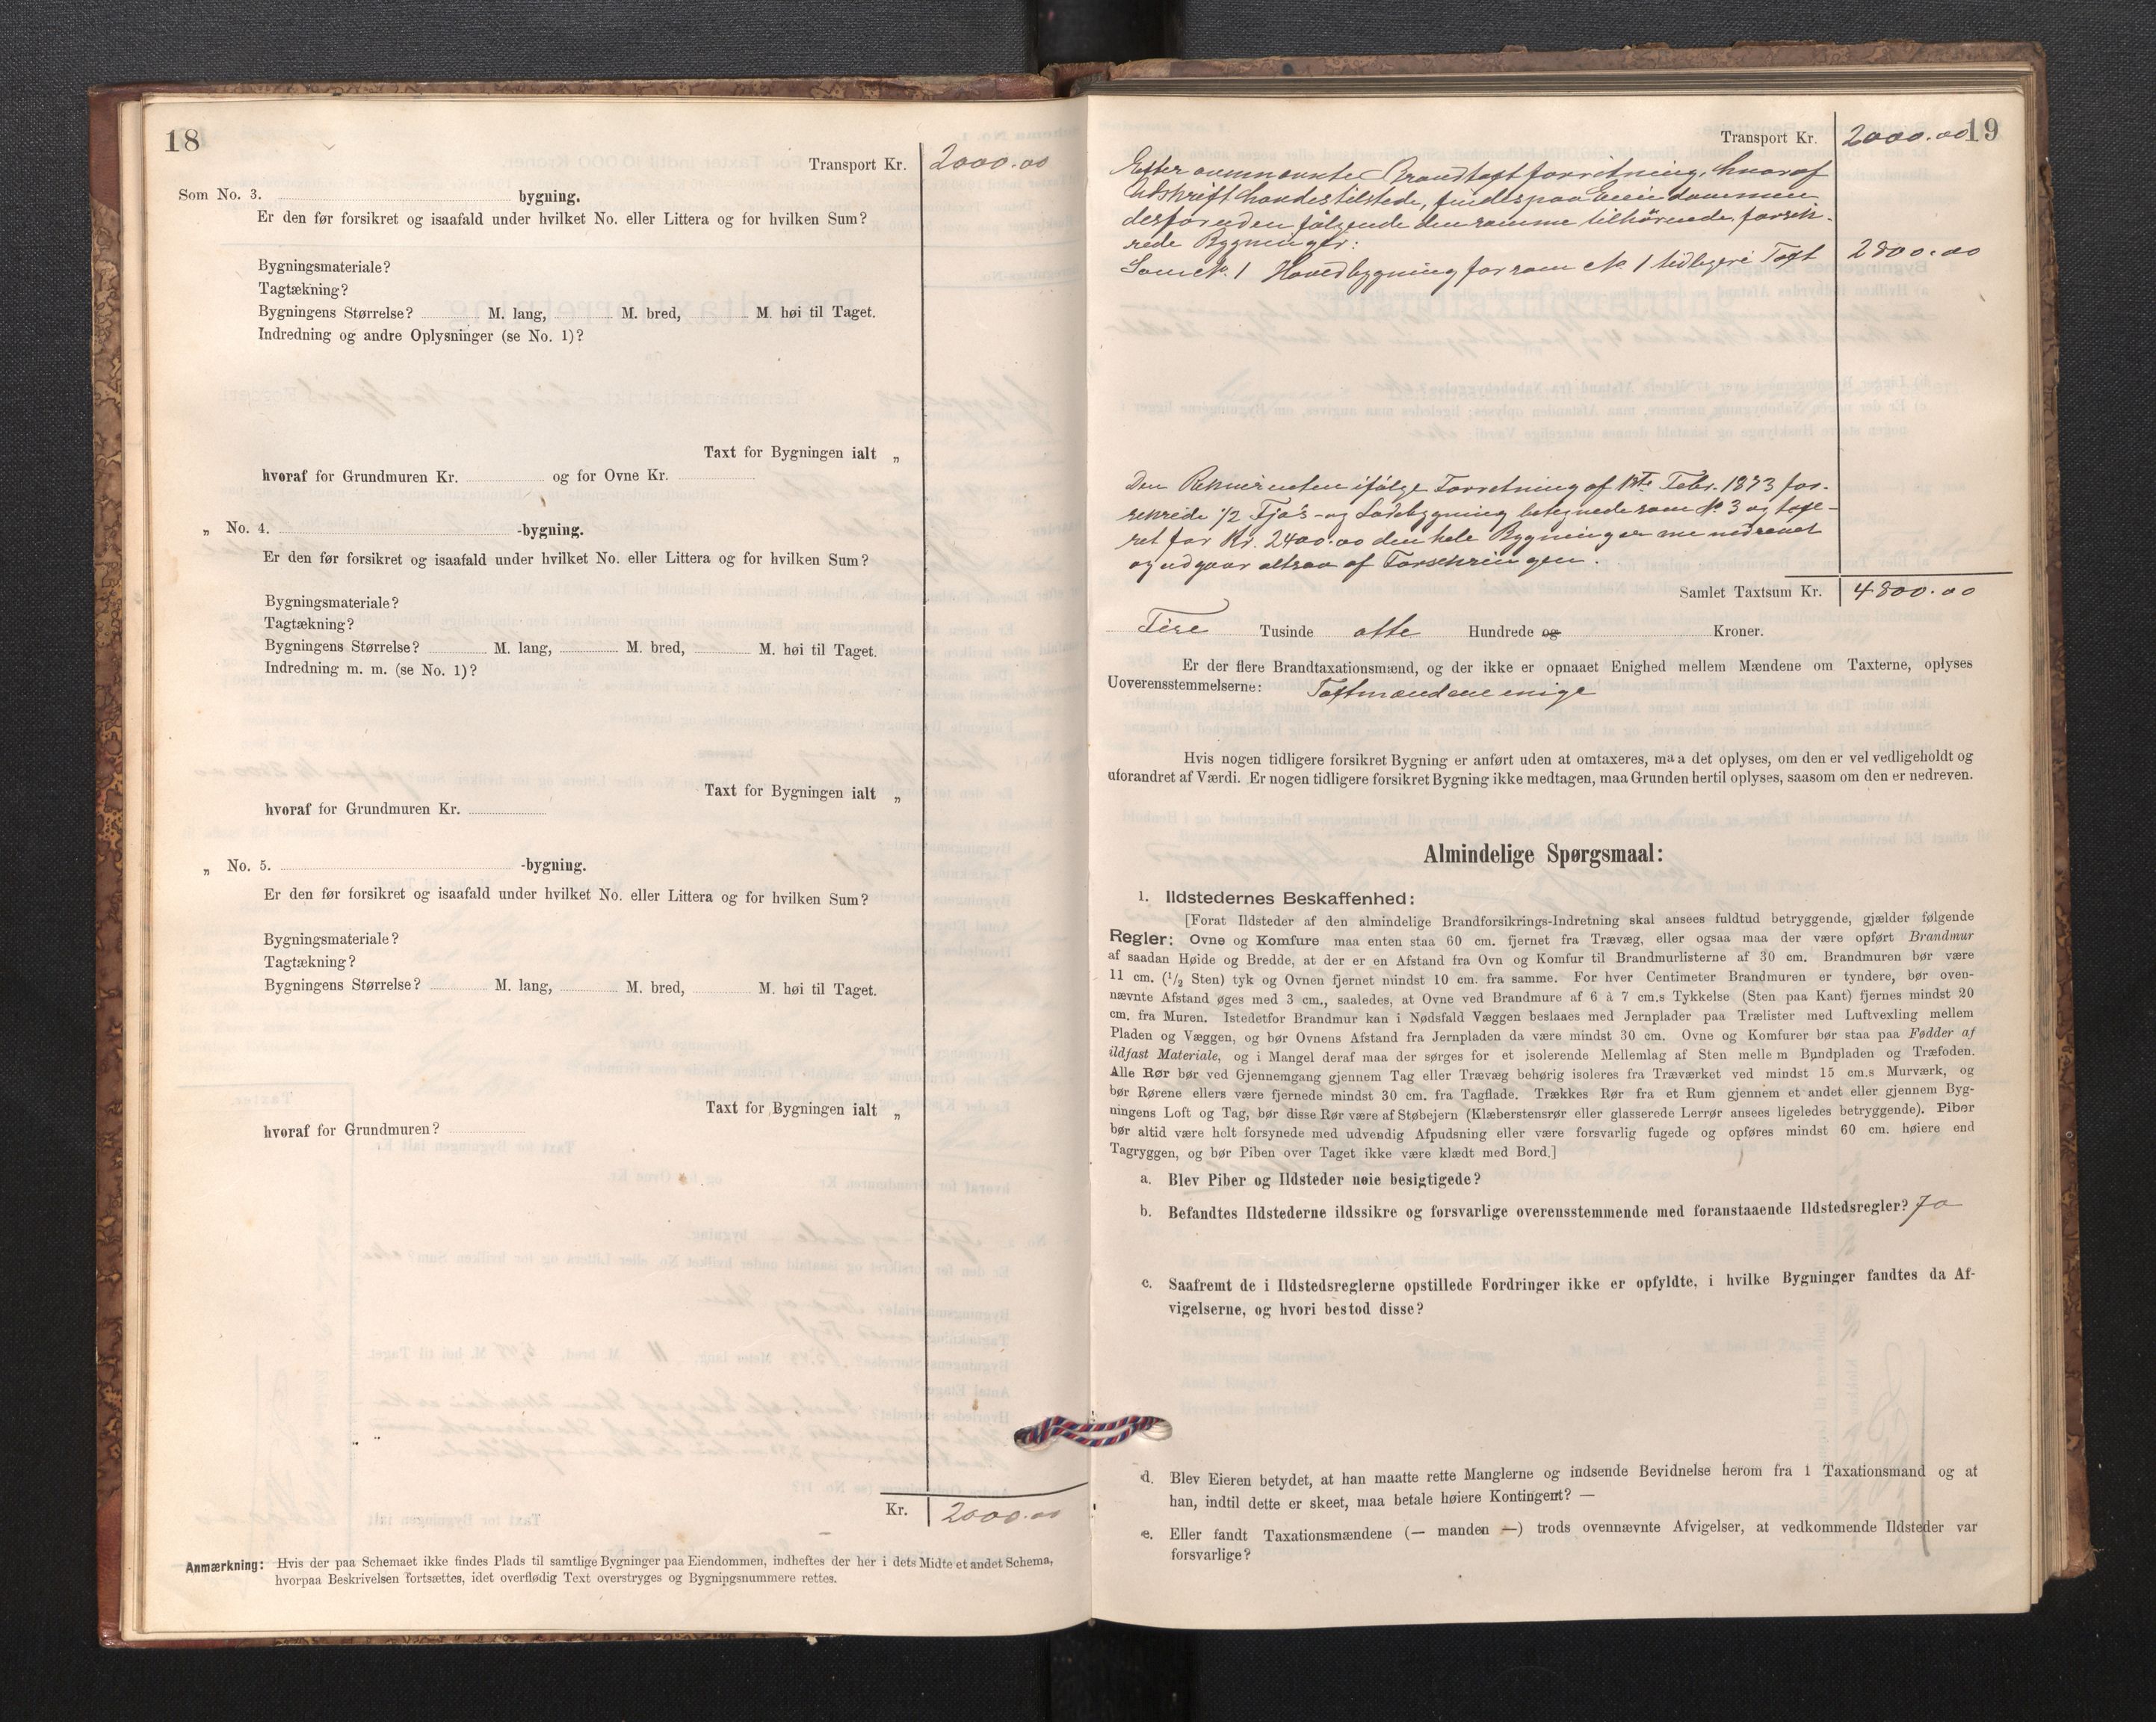 18
Transport Kr. 2000.00
Som No. 3. bygning.
Er den før forsikret og isaafald under hvilket No. eller Littera og for hvilken Sum?
Bygningsmateriale?
Tagtækning?
Bygningens Størrelse? M. lang, M. bred, M. høi til Taget.
Indredning og andre Oplysninger (se No. 1)?
Taxt for Bygningen ialt „
hvoraf for Grundmuren Kr. og for Ovne Kr.
„ No. 4. -bygning.
Er den før forsikret og isaafald under hvilket No. eller Littera og for hvilken Sum?
Bygningsmateriale?
Tagtækning?
Bygningens Størrelse? M. lang, M. bred, M. høi til Taget.
Indredning m. m. (se No. 1)?
Taxt for Bygningen ialt „
hvoraf for Grundmuren Kr.
„ No. 5. -bygning.
Er den før forsikret og isaafald under hvilket No. eller Littera og for hvilken Sum?
Bygningsmateriale?
Tagtækning?
Bygningens Størrelse? M. lang, M. bred, M. høi til Taget.
Taxt for Bygningen ialt „
hvoraf for Grundmuren?
Kr. 2000.00
Anmærkning: Hvis der paa Schemaet ikke findes Plads til samtlige Bygninger paa Eiendommen, indheftes der her i dets Midte et andet Schema,
hvorpaa Beskrivelsen fortsættes, idet overflødig Text overstryges og Bygningsnummere rettes.
19
Transport Kr. 2000.00
Efter ovennævnte Brandtaxtforretning, hvoraf
Udskrift havdes tilstede, findes paa Eiendommen
desforuden følgende den samme tilhørende forsik-
rede Bygninger:
Som No. 1 Hovedbygning for som No 1 tidligere Taxt 2800.00
Den Rekvirenten ifølge Forretning af 1ste Febr. 1873 for-
sikrede 1/2 Fjøs- og Ladebygning betegnede som No 3 og taxe-
ret for Kr. 2400.00 den hele Bygning er nu nedrevet
og udgaar altsaa af Forsikringen.
Samlet Taxtsum Kr. 4800.00
Fire Tusinde otte Hundrede og Kroner.
Er der flere Brandtaxationsmænd, og der ikke er opnaaet Enighed mellem Mændene om Taxterne, oplyses
Uoverensstemmelserne: Taxtmændene enige
Hvis nogen tidligere forsikret Bygning er anført uden at omtaxeres, maa det oplyses, om den er vel vedligeholdt og
uforandret af Værdi. Er nogen tidligere forsikret Bygning ikke medtagen, maa Grunden hertil oplyses, saasom om den er nedreven.
Almindelige Spørgsmaal:
1. Ildstedernes Beskaffenhed:
[Forat Ildsteder af den almindelige Brandforsikrings-Indretning skal ansees fuldtud betryggende, gjælder følgende
Regler: Ovne og Komfure maa enten staa 60 cm. fjernet fra Trævæg, eller ogsaa maa der være opført Brandmur
af saadan Høide og Bredde, at der er en Afstand fra Ovn og Komfur til Brandmurlisterne af 30 cm. Brandmuren bør være
11 cm. (1/2 Sten) tyk og Ovnen fjernet mindst 10 cm. fra samme. For hver Centimeter Brandmuren er tyndere, bør oven-
nævnte Afstand øges med 3 cm., saaledes, at Ovne ved Brandmure af 6 à 7 cm.s Tykkelse (Sten paa Kant) fjernes mindst 20
cm. fra Muren. Istedetfor Brandmur kan i Nødsfald Væggen beslaaes med Jernplader paa Trælister med Luftvexling mellem
Pladen og Væggen, og bør Ovnens Afstand fra Jernpladen da være mindst 30 cm. Ovne og Komfurer bør staa paa Fødder af
ildfast Materiale, og i Mangel deraf maa der sørges for et isolerende Mellemlag af Sten mellem Bundpladen og Træfoden.
Alle Rør bør ved Gjennemgang gjennem Tag eller Trævæg behørig isoleres fra Træværket ved mindst 15 cm.s Murværk, og
bør Rørene ellers være fjernede mindst 30 cm. fra Tagflade. Trækkes Rør fra et Rum gjennem et andet eller gjennem Byg-
ningens Loft og Tag, bør disse Rør være af Støbejern (Klæberstensrør eller glasserede Lerrør ansees ligeledes betryggende). Piber
bør altid være helt forsynede med udvendig Afpudsning eller være forsvarlig fugede og opføres mindst 60 cm. høiere end
Tagryggen, og bør Piben over Taget ikke være klædt med Bord.]
a. Blev Piber og Ildsteder nøie besigtigede?
b. Befandtes Ildstederne ildssikre og forsvarlige overensstemmende med foranstaaende Ildstedsregler? Ja
c. Saafremt de i Ildstedsreglerne opstillede Fordringer ikke er opfyldte, i hvilke Bygninger fandtes da Af-
vigelserne, og hvori bestod disse?
d. Blev Eieren betydet, at han maatte rette Manglerne og indsende Bevidnelse herom fra 1 Taxationsmand og at
han, indtil dette er skeet, maa betale høiere Kontingent? —
e. Eller fandt Taxationsmændene (— manden —) trods ovennævnte Afvigelser, at vedkommende Ildsteder var
forsvarlige?